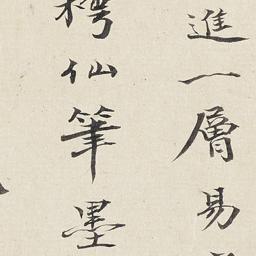 進一層易
樗仙筆墨